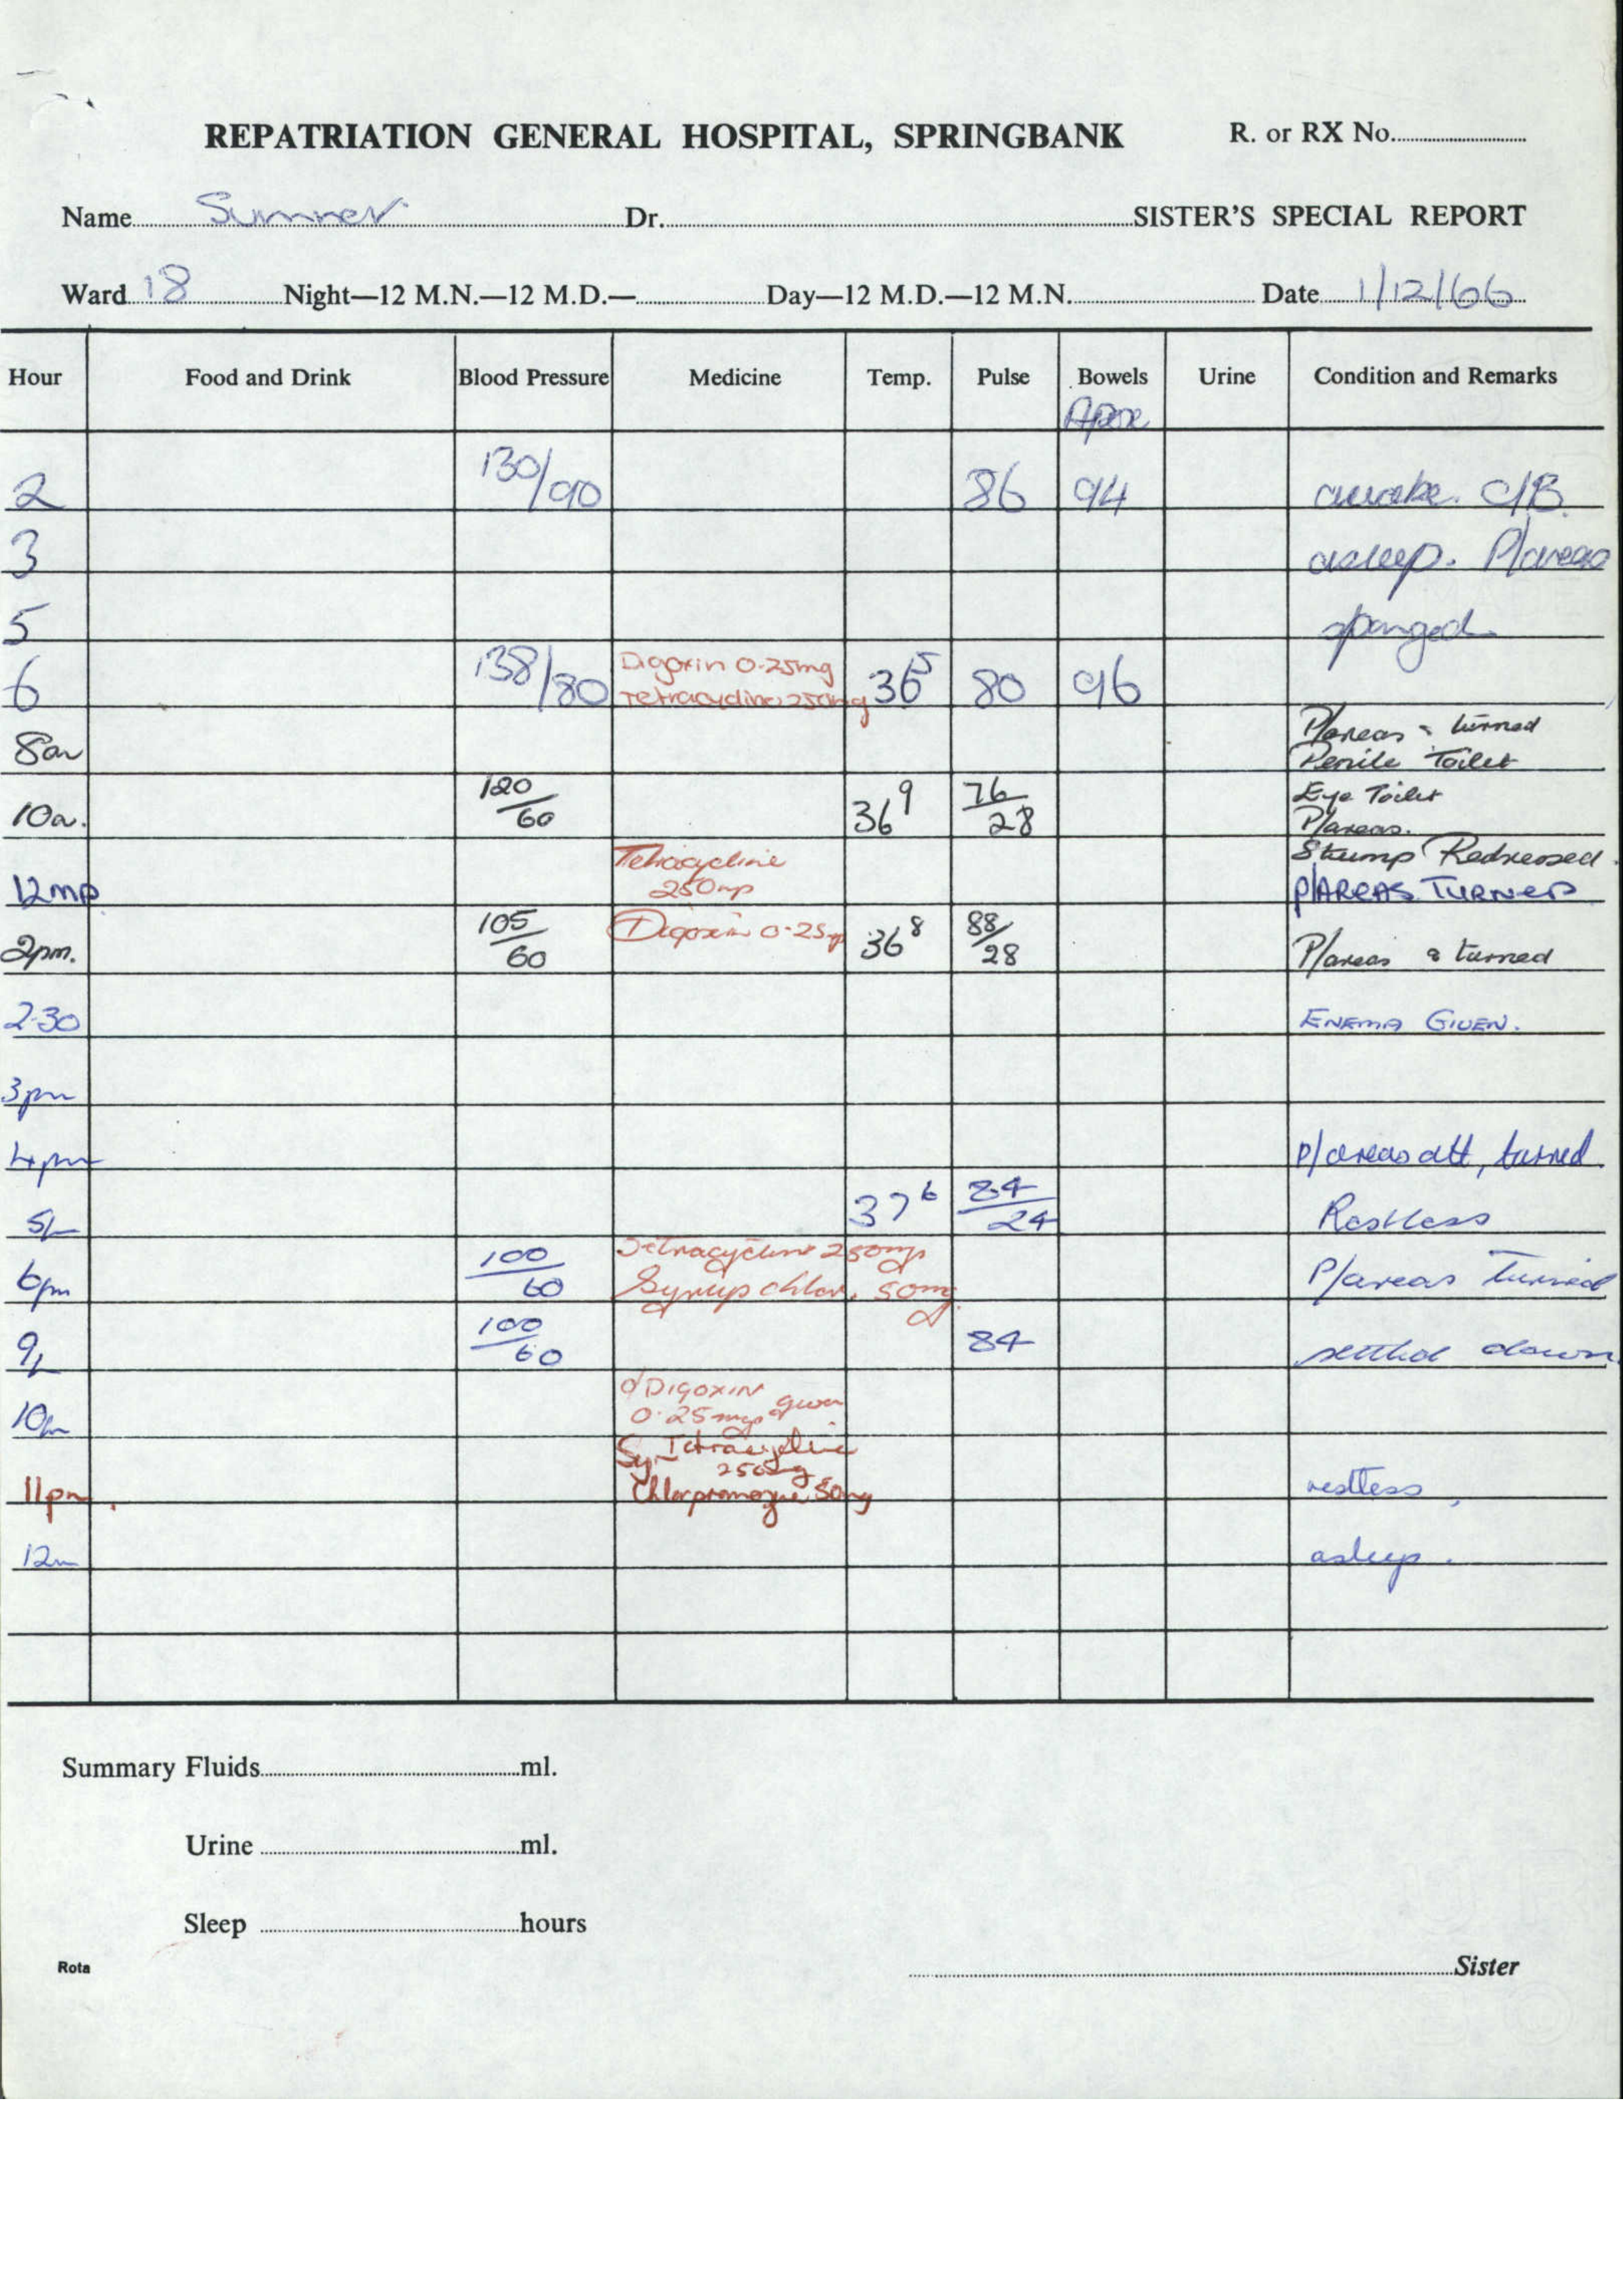 REPATRIATION GENERAL HOSPITAL, SPRINGBANK R. or RX No.
Name Sumner Dr. SISTER'S SPECIAL REPORT
Ward 18 Night—12 M.N.—12 M.D.— Day—12 M.D.—12 M.N. Date 1/12/66
Hour Food and Drink Blood Pressure Medicine Temp. Pulse Bowels Urine Condition and Remarks
Apex
2 130/90 86 94 awake. C/B.
3 asleep. P/areas
5 sponged
6 138/80 Digoxin 0.25mg 36⁵ 80 96
Tetracycline 250mg
P/areas & turned
8am Penile Toilet
10a. 120/60 36⁹ 76/28 Eye Toilet
P/areas.
Tetracycline Stump Redressed.
12md 250mg P/AREAS TURNED
2pm. 105/60 Digoxin 0.25mg 36⁸ 88/28 P/areas & turned
2.30 ENEMA GIVEN.
3pm
4pm P/areas att, turned.
5pm 37⁶ 84/24 Restless
Tetracycline 250mg
6pm 100/60 Syrup chlor. 50mg. P/areas turned
9p 100/60 84 settled down
DIGOXIN
10pm 0.25mg given
Syr Tetracycline
250mg
11pm. Chlorpromazine 50mg restless,
12m asleep.
Summary Fluids ml.
Urine ml.
Sleep hours
Rota Sister